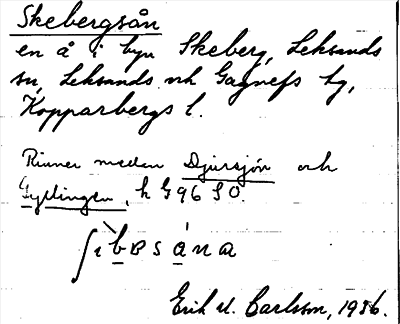 Skebergsån
en å i byn Skeberg, Leksands
sn, Leksands och Gagnefs tg,
Kopparbergs l.
Rinner mellan Djursjön och
Gyllingen, k G 96 SO.
ʃìbɐsána
Erik U. Carlsson, 1936.